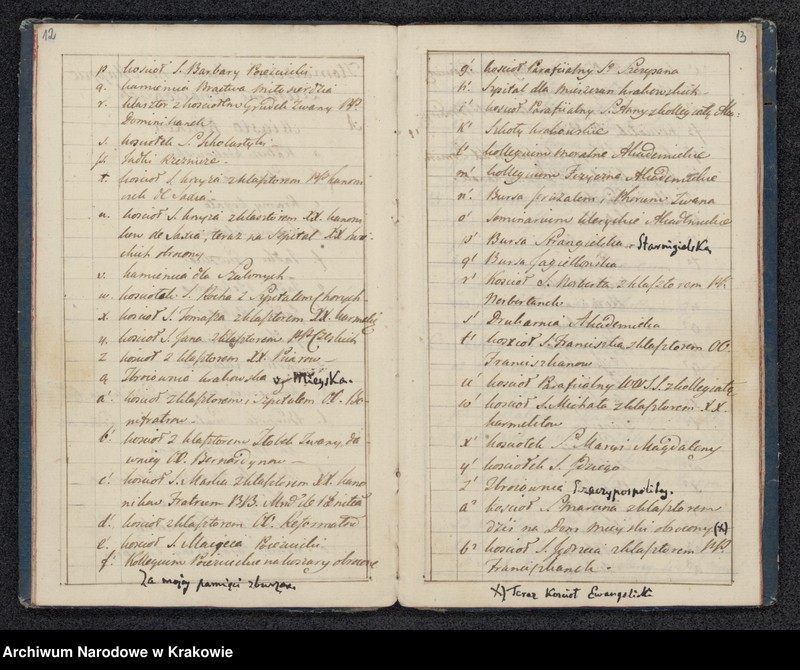 12
p kościoł S. Barbary Pojezuicki
q. kamienica Bractwa Miłosierdzia
r. klasztor z kościołem Grudek zwany PP.
Dominikanek
s. kosciołek S. Scholastyki
Jatki Rzeźnicze.
t. kościoł S. krzyża z klasztorem PP kanon
u. kościoł S. krzyża z klasztorem XX. kanon
ków de Saxia, teraz na Szpital XX
obrocony
v. kamienica dla Szalonych
w. kosciołek S. Rocha z Szpitalem Chorych
x. kościoł S. Tomasza z klasztorem XX. karmelit
y. kościoł S. Jana z klasztorem PP Czeskich
z kościoł z klasztorem XX. Piarow
a Zbroiownia krakowska v. Mieyska.
a' kościoł z klasztorem i Szpitalem OO. Bo-
nifratrow
b' kościoł z klasztorem Żłobek zwany, da
wniey OO. Bernardynow
c' kościoł S. Marka z klasztorem XX. kano
nikow Fratrum
d' kościoł z klasztorem OO. Reformatow
e' kościoł S. Macieia Pojezuicki
f' Kollegium Pojezuickie na koszary obrocone
Za mojej pamięci zburzon.
13
g' kościoł Parafiialny S. Szczepana
h' Szpital dla Mieszczan krakowskich
i' kościoł Parafiialny S. Anny z kollegiatą Aka-
k' Szkoły krakowskie
l' kollegium Moralne Akademickie
m' kollegium Fizyczne Akademickie
n' Bursa Jeruzalem i Philosophorum zwana
o' Seminarium kleryckie Akademickie
p' Bursa Starnigielska
q' Bursa Jagiellońska
r' Kościoł S. Norberta z klasztorem PP.
Norbertanek
s' Drukarnia Akademicka
t' kościoł S. Franciszka z klasztorem OO.
Franciszkanow
u' kościoł Parafiialny WW.SS. z kollegiatą
w' kościoł S. Michała z klasztorem XX.
karmelitow
x' kosciołek S. Maryi Magdaleny
y' kosciołek S. Idziego
z' Zbroiownia Rzeczypospolitey.
a" kościoł S. Marcina z klasztorem
dziś na Dom Mieyski obrocony (x)
b" kościoł S. Jędrzeia z klasztorem PP.
Franciszkanek.
x) Teraz Kościoł Ewangelicki
Archiwum Narodowe w Krakowie